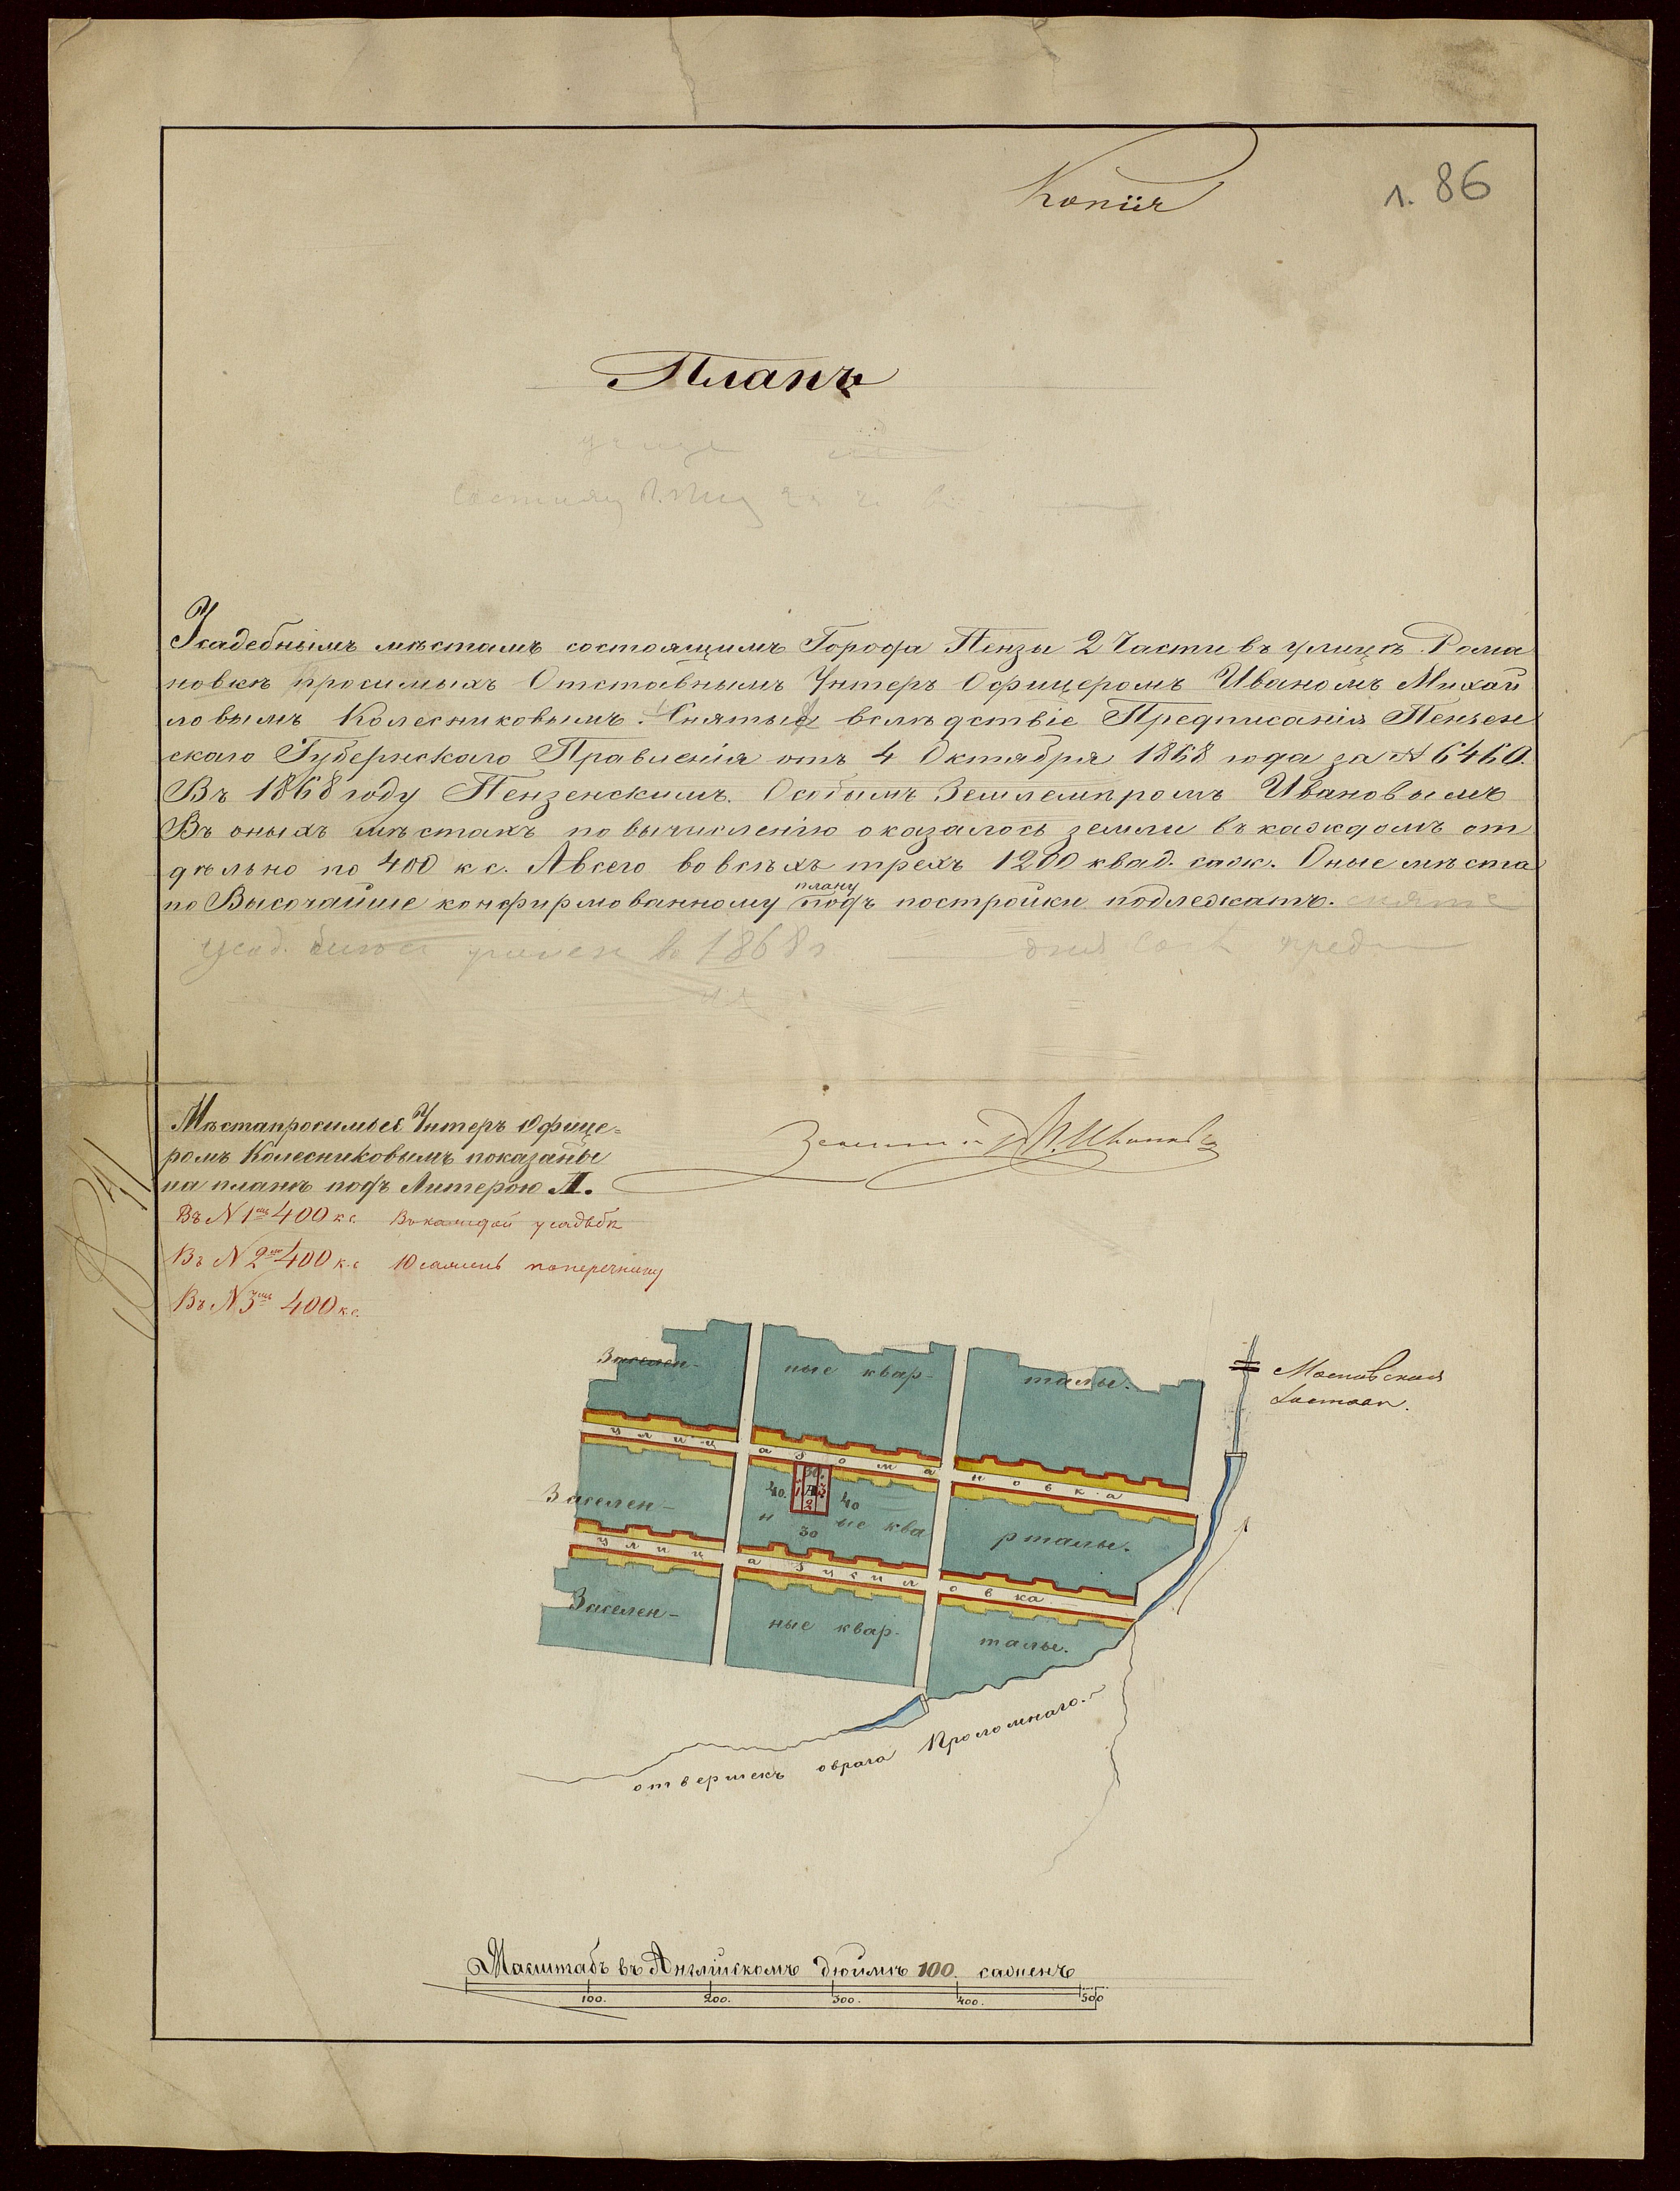 Копія
л. 86
Планъ
Усадебнымъ мѣстамъ состоящимъ Города Пензы 2 Части въ улицѣ Рома
новкѣ просимыхъ Отставнымъ Унтеръ Офицеромъ Иваномъ Михай
ловымъ Колесниковымъ. Снятые вслѣдствіе Предписанія Пензен
скаго Губернскаго Правленія отъ 4 Октября 1868 года за № 6460.
Въ 1868 году Пензенскимъ Особымъ Землемѣромъ Ивановымъ
Въ оныхъ мѣстахъ по вычисленію оказалось земли въ каждомъ от
дѣльно по 400 к с. А всего во всѣхъ трехъ 1200 квад. саж. Оные мѣста
плану
по Высочайше конфирмованному подъ постройки подлежатъ.
1868 г.
Мѣста просимые Унтеръ Офице=
ромъ Колесниковымъ показаны
на планѣ подъ Литерою А.
Иванов
Въ N 1мъ 400 к с. Въ каждой усадьбѣ
Въ N 2мъ 400 к. с 10 сажень поперечнику
Въ N 3мъ 400 к с.
Заселен-
ные квар-
талы.
Московская
Застава.
улица Романовка
30.
40. 1 А 3 40
2
30
Заселен-
ные ква
рталы.
улица
овка
Заселен-
ные квар-
талы.
отвершекъ оврага Проломнаго.
Масштабъ въ Англійскомъ дюймѣ 100. саженъ
100. 200. 300. 400. 500